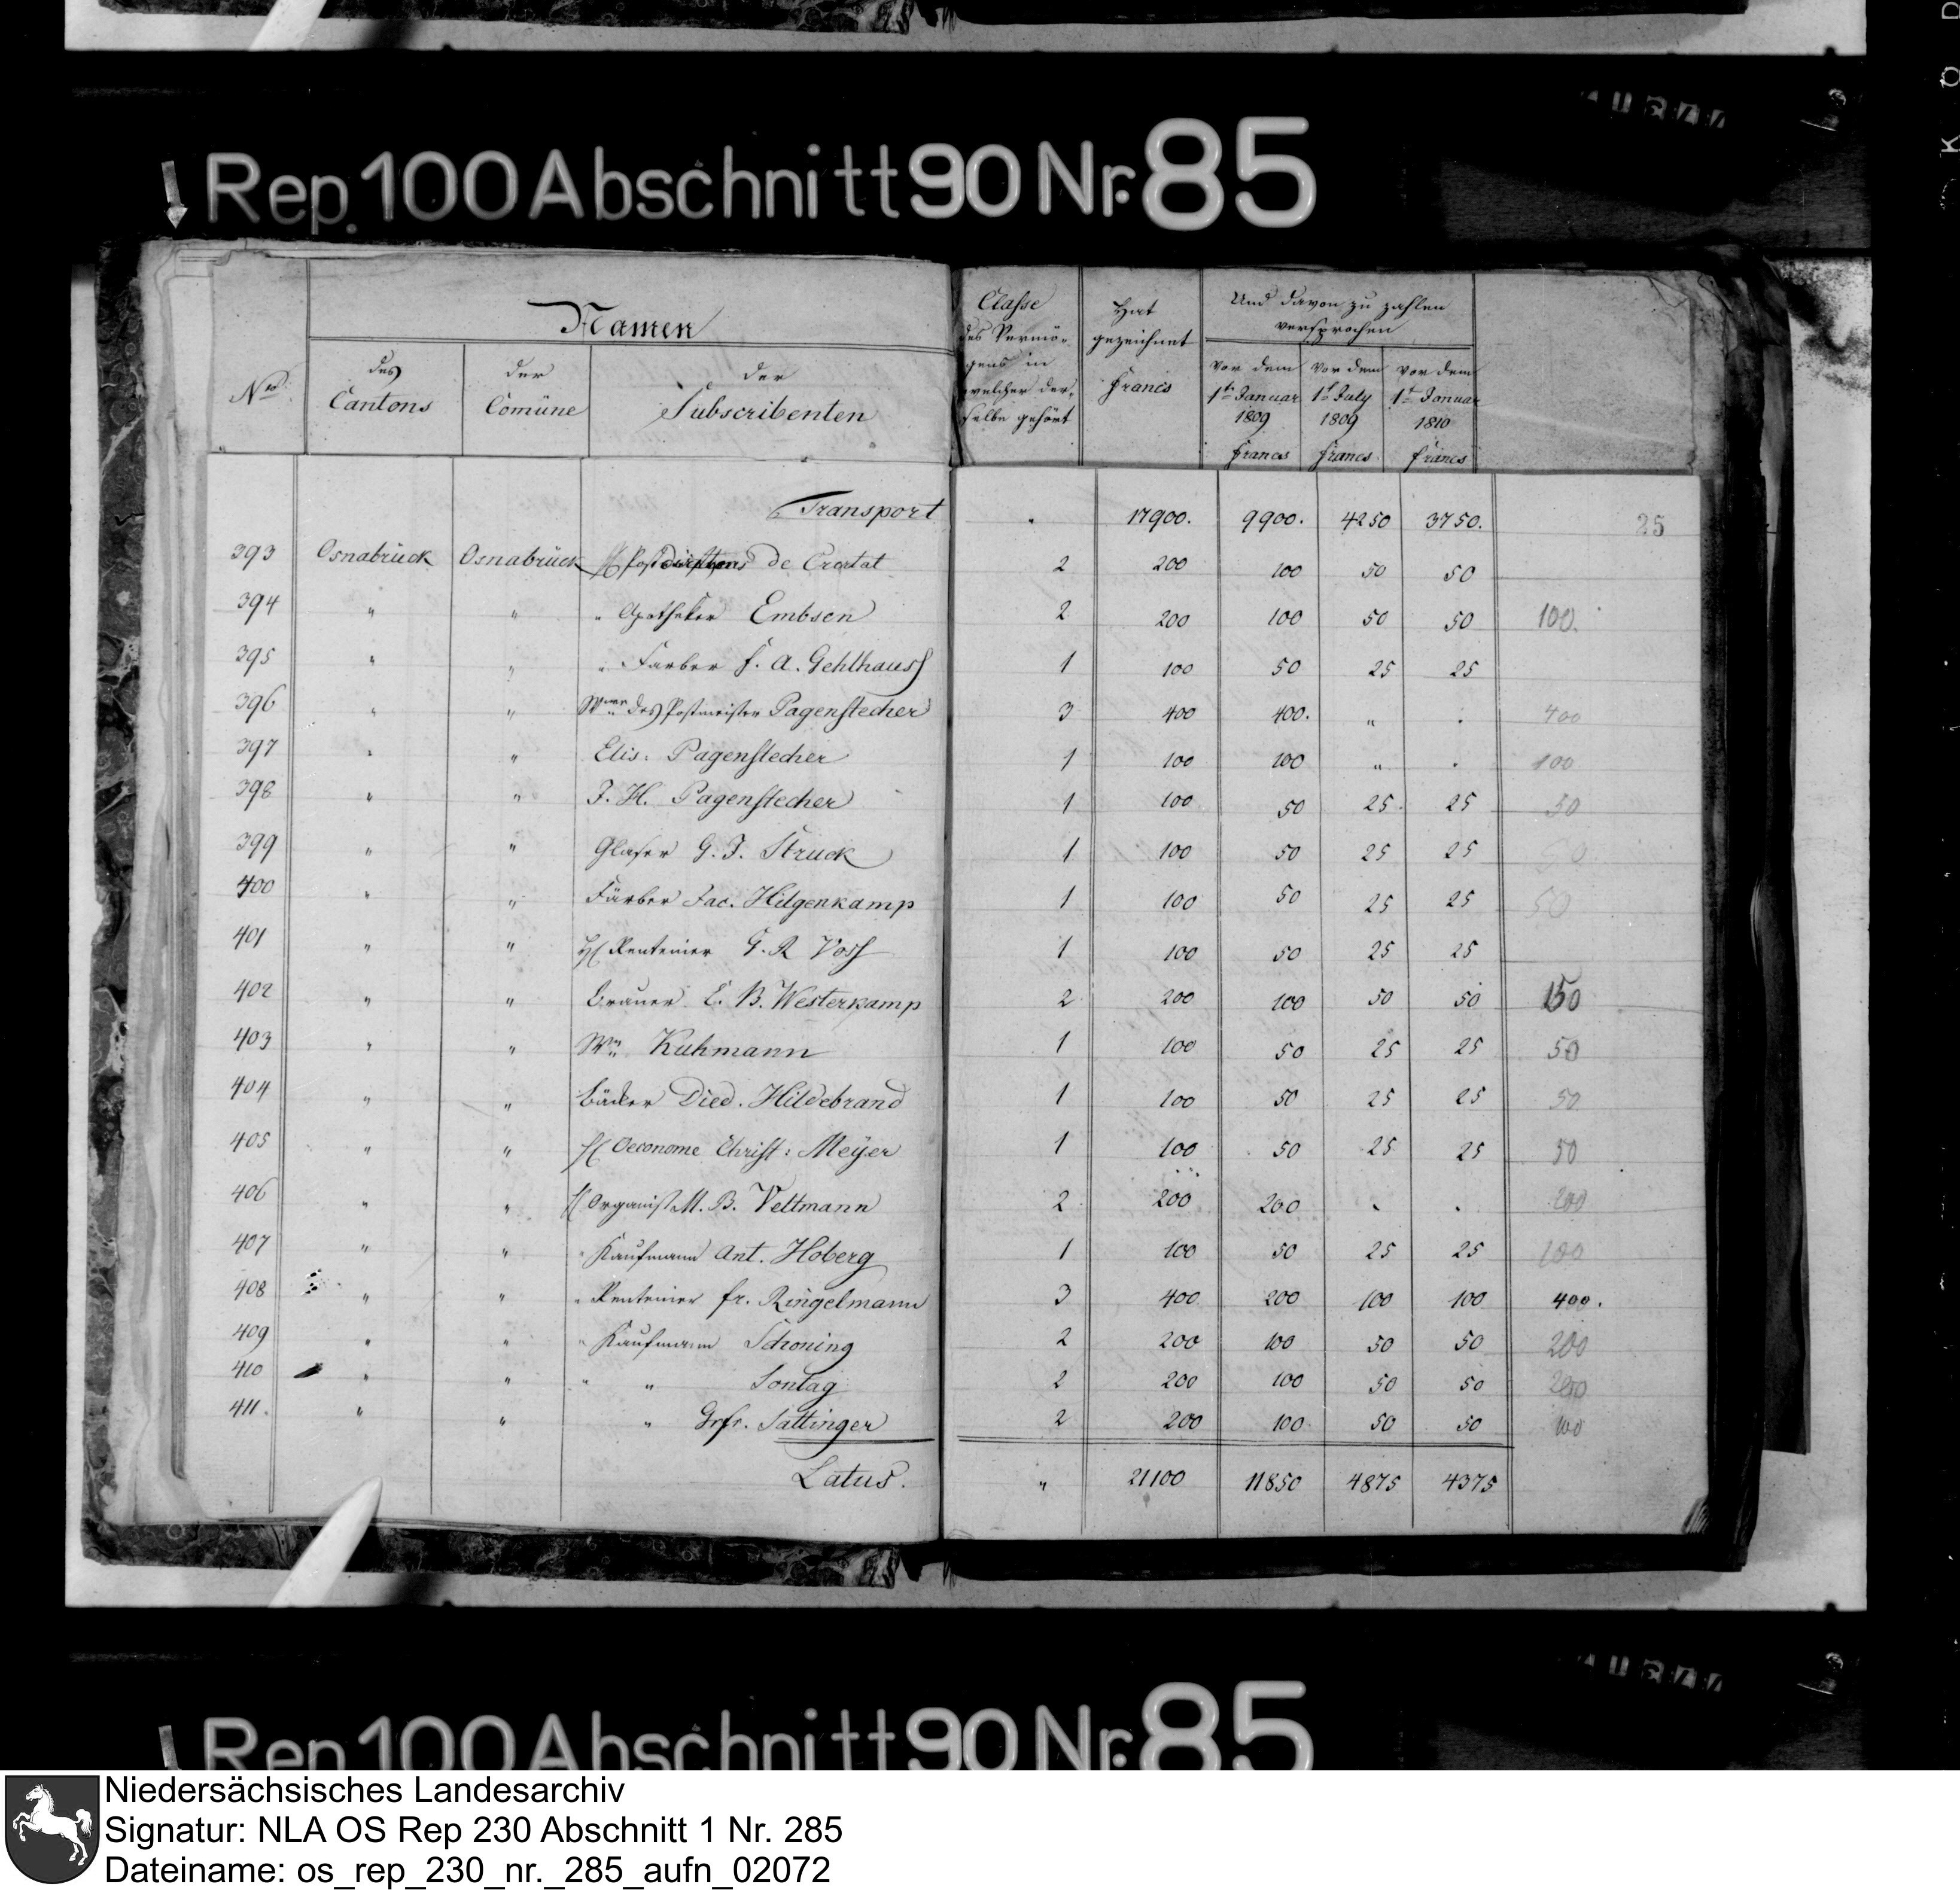 Rep. 100 Abschnitt 90 Nr. 85
Namen
Nro.
des Cantons
der Comüne
der Subscribenten
Classe des Vermö-
gens in
welcher der-
selbe gehört
Hat
gezeichnet
Francs
Und davon zu zahlen
versprochen
vor dem 1t Januar 1809 Francs
vor dem 1t July 1809 Francs
vor dem 1t Januar 1810 Francs
25
Transport " 17900. 9900. 4250 3750.
393 Osnabrück Osnabrück H de 2 200 100 50 50
394 " " " Apotheker Embsen 2 200 100 50 50 100.
395 " " " Färber F. A. Gehlhauss 1 100 50 25 25
396 " " Wwe des Postmeister Pagenstecher 3 400 400. " " 400
397 " " Elis: Pagenstecher 1 100 100 " " 100
398 " " J. H. Pagenstecher 1 100 50 25 25 50
399 " " Glaser G. J. Struck 1 100 50 25 25
400 " " Färber Jac. Hilgenkamp 1 100 50 25 25 50
401 " " H Rentenier G. R Voss 1 100 50 25 25
402 " " Brauer E. B. Westerkamp 2 200 100 50 50 150
403 " " Ww Kuhmann 1 100 50 25 25 50
404 " " Bäcker Died. Hildebrand 1 100 50 25 25 50
405 " " H Oeconome Christ: Meÿer 1 100 50 25 25 50
406 " " H Organist M. B. Veltmann 2 200 200 " " 200
407 " " " Kaufmann Ant. Hoberg 1 100 50 25 25 100
408 " " " Rentenier fr. Ringelmann 3 400 200 100 100 400.
409 " " " Kaufmann Schöning 2 200 100 50 50 200
410 " " " " Sontag 2 200 100 50 50 200
411. " " " Sattinger 2 200 100 50 50 100
Latus. " 21100 11850 4875 4375
Rep. 100 Abschnitt 90 Nr. 85
Niedersächsisches Landesarchiv
Signatur: NLA OS Rep 230 Abschnitt 1 Nr. 285
Dateiname: os_rep_230_nr._285_aufn_02072